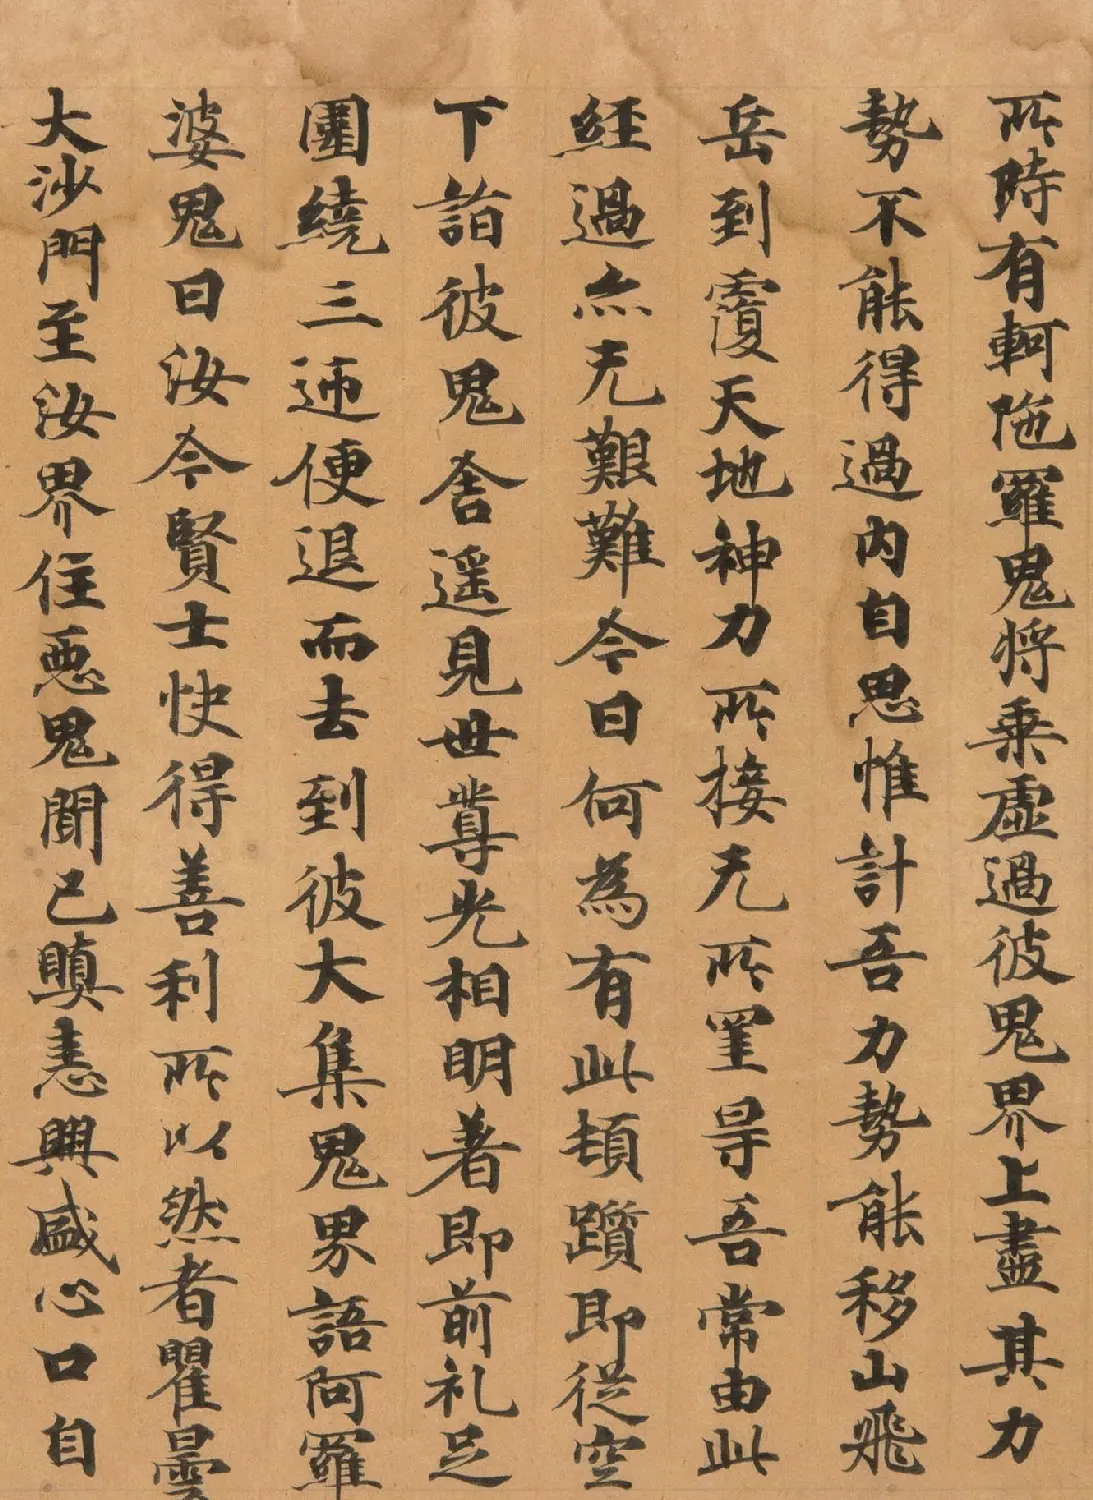 所時有軻陁羅鬼將乗虛過彼鬼界上盡其力
勢不能得過内自思惟計吾力勢能移山飛
岳到覆天地神力所接无所罣㝵吾常由此
經過亦无艱難今日何為有此頓躓即從空
下詣彼鬼舍遥見世尊光相明著即前礼足
圍繞三迊便退而去到彼大集鬼界語阿羅
婆鬼曰汝今賢士快得善利所以然者瞿曇
大沙門至汝界住惡鬼聞已瞋恚興盛心口自